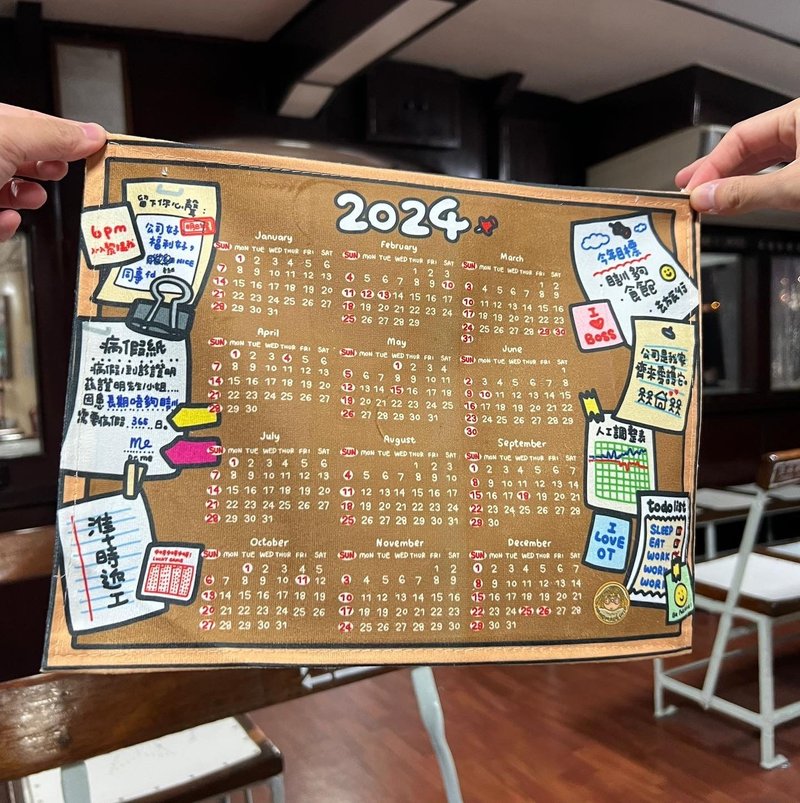 2024
留下你心聲:
公司好,
福利好,
同事好
6pm
病假紙
病假到該證明
茲證明先生/小姐
因患長期唔夠瞓
需要病假 365 日。
Me
準時返工
January
SUN MON TUE WED THUR FRI SAT
1 2 3 4 5 6
7 8 9 10 11 12 13
14 15 16 17 18 19 20
21 22 23 24 25 26 27
28 29 30 31
February
SUN MON TUE WED THUR FRI SAT
1 2 3
4 5 6 7 8 9 10
11 12 13 14 15 16 17
18 19 20 21 22 23 24
25 26 27 28 29
March
SUN MON TUE WED THUR FRI SAT
1 2
3 4 5 6 7 8 9
10 11 12 13 14 15 16
17 18 19 20 21 22 23
24 25 26 27 28 29 30
31
April
SUN MON TUE WED THUR FRI SAT
1 2 3 4 5 6
7 8 9 10 11 12 13
14 15 16 17 18 19 20
21 22 23 24 25 26 27
28 29 30
May
SUN MON TUE WED THUR FRI SAT
1 2 3 4
5 6 7 8 9 10 11
12 13 14 15 16 17 18
19 20 21 22 23 24 25
26 27 28 29 30 31
June
SUN MON TUE WED THUR FRI SAT
1
2 3 4 5 6 7 8
9 10 11 12 13 14 15
16 17 18 19 20 21 22
23 24 25 26 27 28 29
30
July
SUN MON TUE WED THUR FRI SAT
1 2 3 4 5 6
7 8 9 10 11 12 13
14 15 16 17 18 19 20
21 22 23 24 25 26 27
28 29 30 31
August
SUN MON TUE WED THUR FRI SAT
1 2 3
4 5 6 7 8 9 10
11 12 13 14 15 16 17
18 19 20 21 22 23 24
25 26 27 28 29 30 31
September
SUN MON TUE WED THUR FRI SAT
1 2 3 4 5 6 7
8 9 10 11 12 13 14
15 16 17 18 19 20 21
22 23 24 25 26 27 28
29 30
October
SUN MON TUE WED THUR FRI SAT
1 2 3 4 5
6 7 8 9 10 11 12
13 14 15 16 17 18 19
20 21 22 23 24 25 26
27 28 29 30 31
November
SUN MON TUE WED THUR FRI SAT
1 2
3 4 5 6 7 8 9
10 11 12 13 14 15 16
17 18 19 20 21 22 23
24 25 26 27 28 29 30
December
SUN MON TUE WED THUR FRI SAT
1 2 3 4 5 6 7
8 9 10 11 12 13 14
15 16 17 18 19 20 21
22 23 24 25 26 27 28
29 30 31
今年目標
瞓夠
食飽
去旅行
I
BOSS
公司是我家
人工調整表
I
LOVE
OT
to do list
SLEEP
EAT
WORK
WORK
WORK